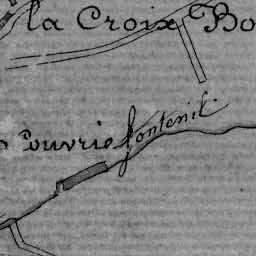 la Croix Bo
Pouvrie
fontenil